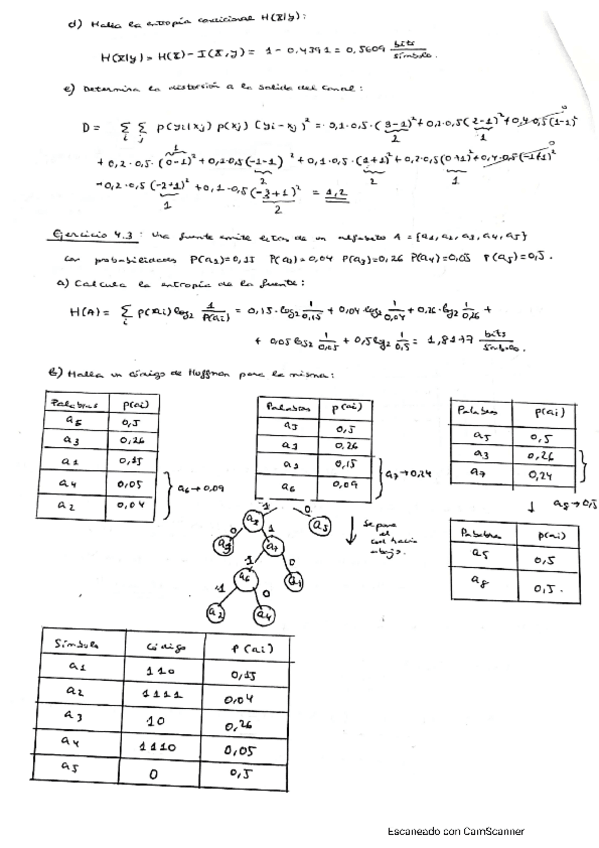 d) Halla la entropía condicional H(X|y):
H(X|y) = H(X) - I(X,y) = 1 - 0,4391 = 0,5609 bits/símbolo.
e) Determina la distorsión a la salida del canal:
D = Σi Σj p(yi|xj) p(xj) (yi-xj)² = 0,1·0,5·(3-1)² + 0,2·0,5(2-1)² + 0,4·0,5(1-1)²
2 1 0
+ 0,2·0,5·(0-1)² + 0,1·0,5(-1-1)² + 0,1·0,5·(1+1)² + 0,2·0,5(0+1)² + 0,4·0,5(-1+1)²
1 2 2 1 0
+ 0,2·0,5(-2+1)² + 0,1·0,5(-3+1)² = 1,2
1 2
Ejercicio 4.3: Una fuente emite letras de un alfabeto A = {a1, a2, a3, a4, a5}
con probabilidades P(a1)=0,15 P(a2)=0,04 P(a3)=0,26 P(a4)=0,05 P(a5)=0,5.
a) Calcula la entropía de la fuente:
H(A) = Σi p(ai) log2 1/P(ai) = 0,15·log2 1/0,15 + 0,04 log2 1/0,04 + 0,26·log2 1/0,26 +
+ 0,05 log2 1/0,05 + 0,5 log2 1/0,5 = 1,8177 bits/símbolo.
b) Halla un código de Huffman para la misma:
Palabras p(ai)
a5 0,5
a3 0,26
a1 0,15
a4 0,05
a2 0,04
a6→0,09
Palabras p(ai)
a5 0,5
a3 0,26
a1 0,15
a6 0,09
a7→0,24
Palabras p(ai)
a5 0,5
a3 0,26
a7 0,24
↓ a8→0,5
Palabras p(ai)
a5 0,5
a8 0,5.
1 0
a8 a5
0 1
a3 a7
1 0
a6 a1
1 0
a2 a4
↓ Se pone el cod. hacia abajo.
Símbolo Código P(ai)
a1 110 0,15
a2 1111 0,04
a3 10 0,26
a4 1110 0,05
a5 0 0,5
Escaneado con CamScanner